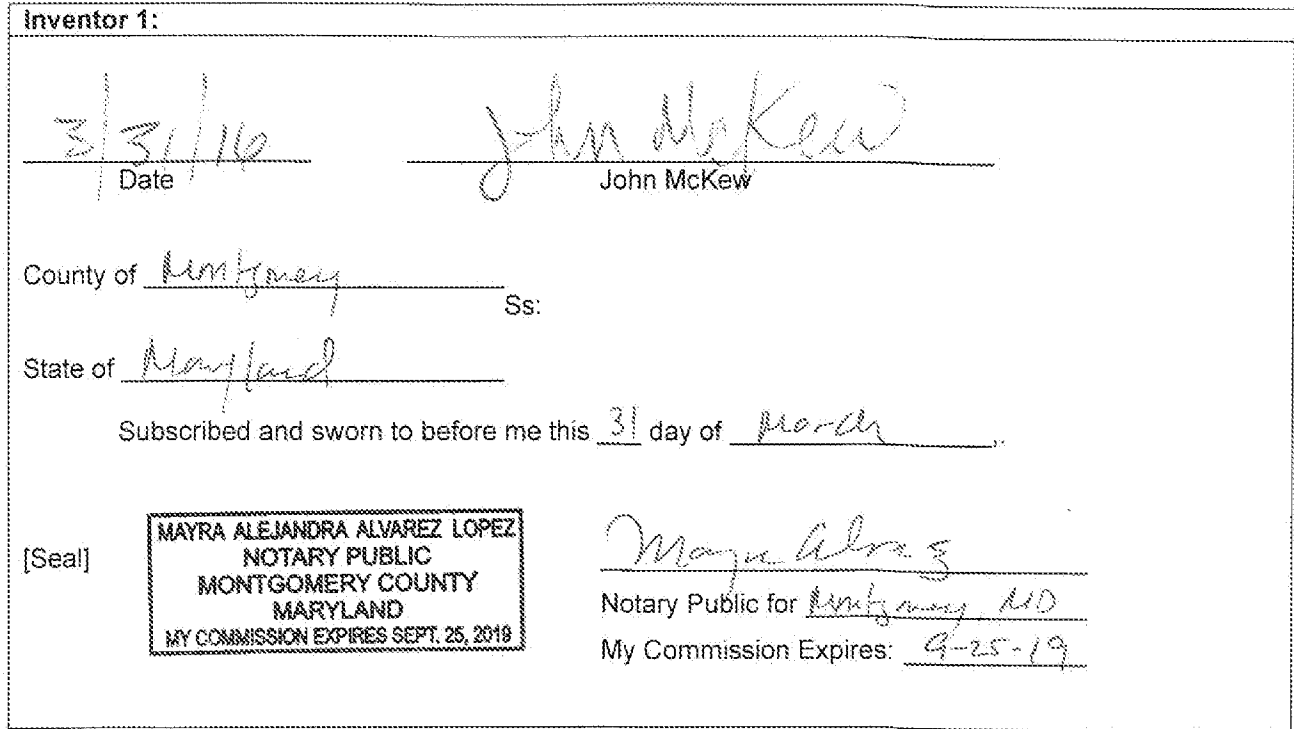 Inventor 1:
3/31/16 John McKew
Date John McKew
County of Montgomery
Ss:
State of Maryland
Subscribed and sworn to before me this 31 day of March
[Seal]
MAYRA ALEJANDRA ALVAREZ LOPEZ
NOTARY PUBLIC
MONTGOMERY COUNTY
MARYLAND
MY COMMISSION EXPIRES SEPT. 25, 2019
Mayra Alvarez
Notary Public for Montgomery, MD
My Commission Expires: 9-25-19